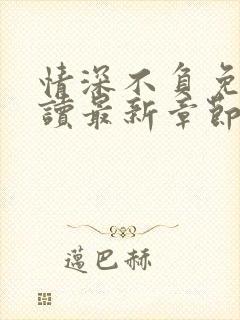 情深不負免
讀最新章節
邁巴赫